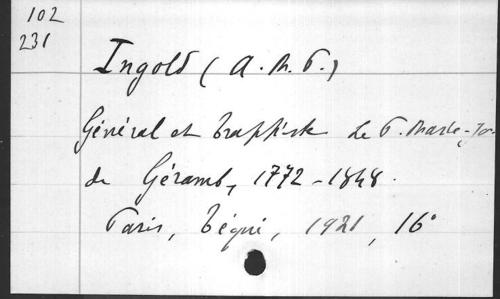 102
231
Ingold (A. M. P.)
Général et trappiste Le P. Marie-Jo-
de Géramb, 1772-1848.
Paris, Téqui, 1921, 16°